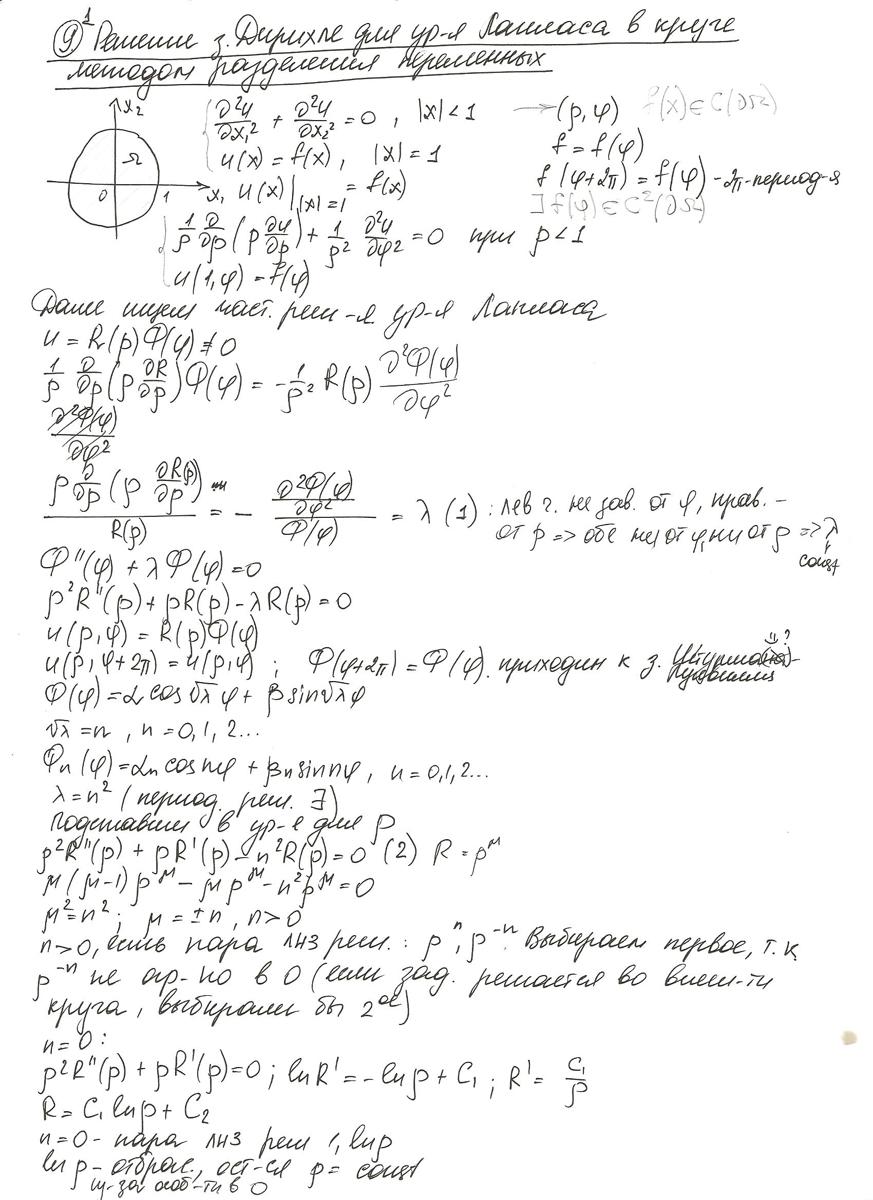 9¹ Решение з. Дирихле для ур-я Лапласа в круге
методом разделения переменных
x₂
Ω
0 1 x₁
∂²u/∂x₁² + ∂²u/∂x₂² = 0 , |x|<1 → (ρ, φ) f(x) ∈ C(∂Ω)
u(x) = f(x), |x| = 1 f = f(φ)
u(x)| |x|=1 = f(x) f(φ+2π) = f(φ) - 2π-период-я
∃ f(φ) ∈ C²(∂Ω)
1/ρ ∂/∂ρ (ρ ∂u/∂ρ) + 1/ρ² ∂²u/∂φ² = 0 при ρ<1
u(1, φ) = f(φ)
Далее ищем част. реш-я ур-я Лапласа
u = R(ρ)Φ(φ) ≠ 0
1/ρ ∂/∂ρ (ρ ∂R/∂ρ) Φ(φ) = - 1/ρ² R(ρ) ∂²Φ(φ)/∂φ²
∂²Φ(φ)/∂φ²
ρ ∂/∂ρ (ρ ∂R(ρ)/∂ρ) / R(ρ) = - ∂²Φ(φ)/∂φ² / Φ(φ) = λ (1) : лев ч. не зав. от φ, прав. -
от ρ => обе не от φ, ни от ρ => λ
const
Φ''(φ) + λΦ(φ) = 0
ρ²R''(ρ) + ρR(ρ) - λR(ρ) = 0
u(ρ, φ) = R(ρ)Φ(φ)
u(ρ, φ+2π) = u(ρ, φ) ; Φ(φ+2π) = Φ(φ). приходим к з. Штурма-
Лиувилля
Φ(φ) = α cos√λφ + β sin√λφ
√λ = n , n = 0, 1, 2...
Φn(φ) = αn cos nφ + βn sin nφ , n = 0,1,2...
λ = n² (период. реш. ∃)
подставим в ур-е для ρ
ρ²R''(ρ) + ρR'(ρ) - n²R(ρ) = 0 (2) R = ρ^μ
μ(μ-1)ρ^μ - μρ^μ - n²ρ^μ = 0
μ² = n² ; μ = ±n , n>0
n>0, есть пара лнз реш. : ρⁿ, ρ⁻ⁿ. Выбираем первое, т.к
ρ⁻ⁿ не огр-но в 0 (если зад. решается во внеш-ти
круга, выбирали бы 2ое)
n = 0 :
ρ²R''(ρ) + ρR'(ρ) = 0 ; ln R' = - ln ρ + C₁ ; R' = C₁/ρ
R = C₁ ln ρ + C₂
n = 0 - пара лнз реш 1, ln ρ
ln ρ - отбрас., ост-ся ρ = const
из-за особ-ти в 0